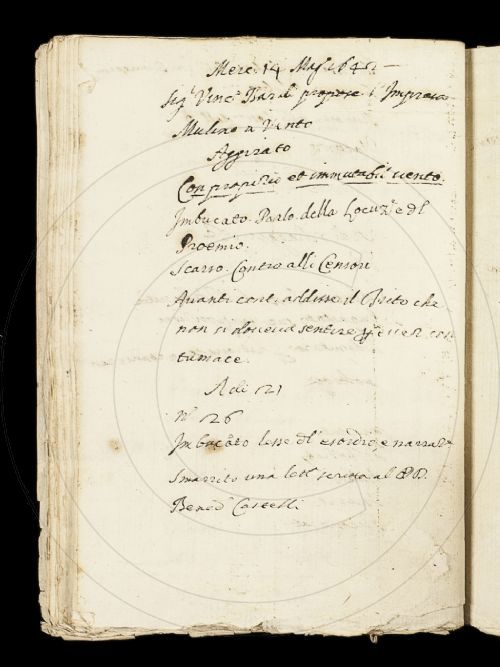 Merc. 14 Mag. 164
Sig.r Vinc.o Bardi propose i Impresa
Mulino a Vento
Aggirato
Con propizio et immutabil vento.
Imbucato. Parlò della Locuz.e e dl
Proemio.
Scarso. Contro alli Censori
Avanti cont. addisse il che
non si doveva sentire p. esser con
tumace.
A di 21
N.o 26
Imbucato lesse dl esordio, e narraz.e
Smarrito una lett.a scritta al P.D.
Bened.o Castelli